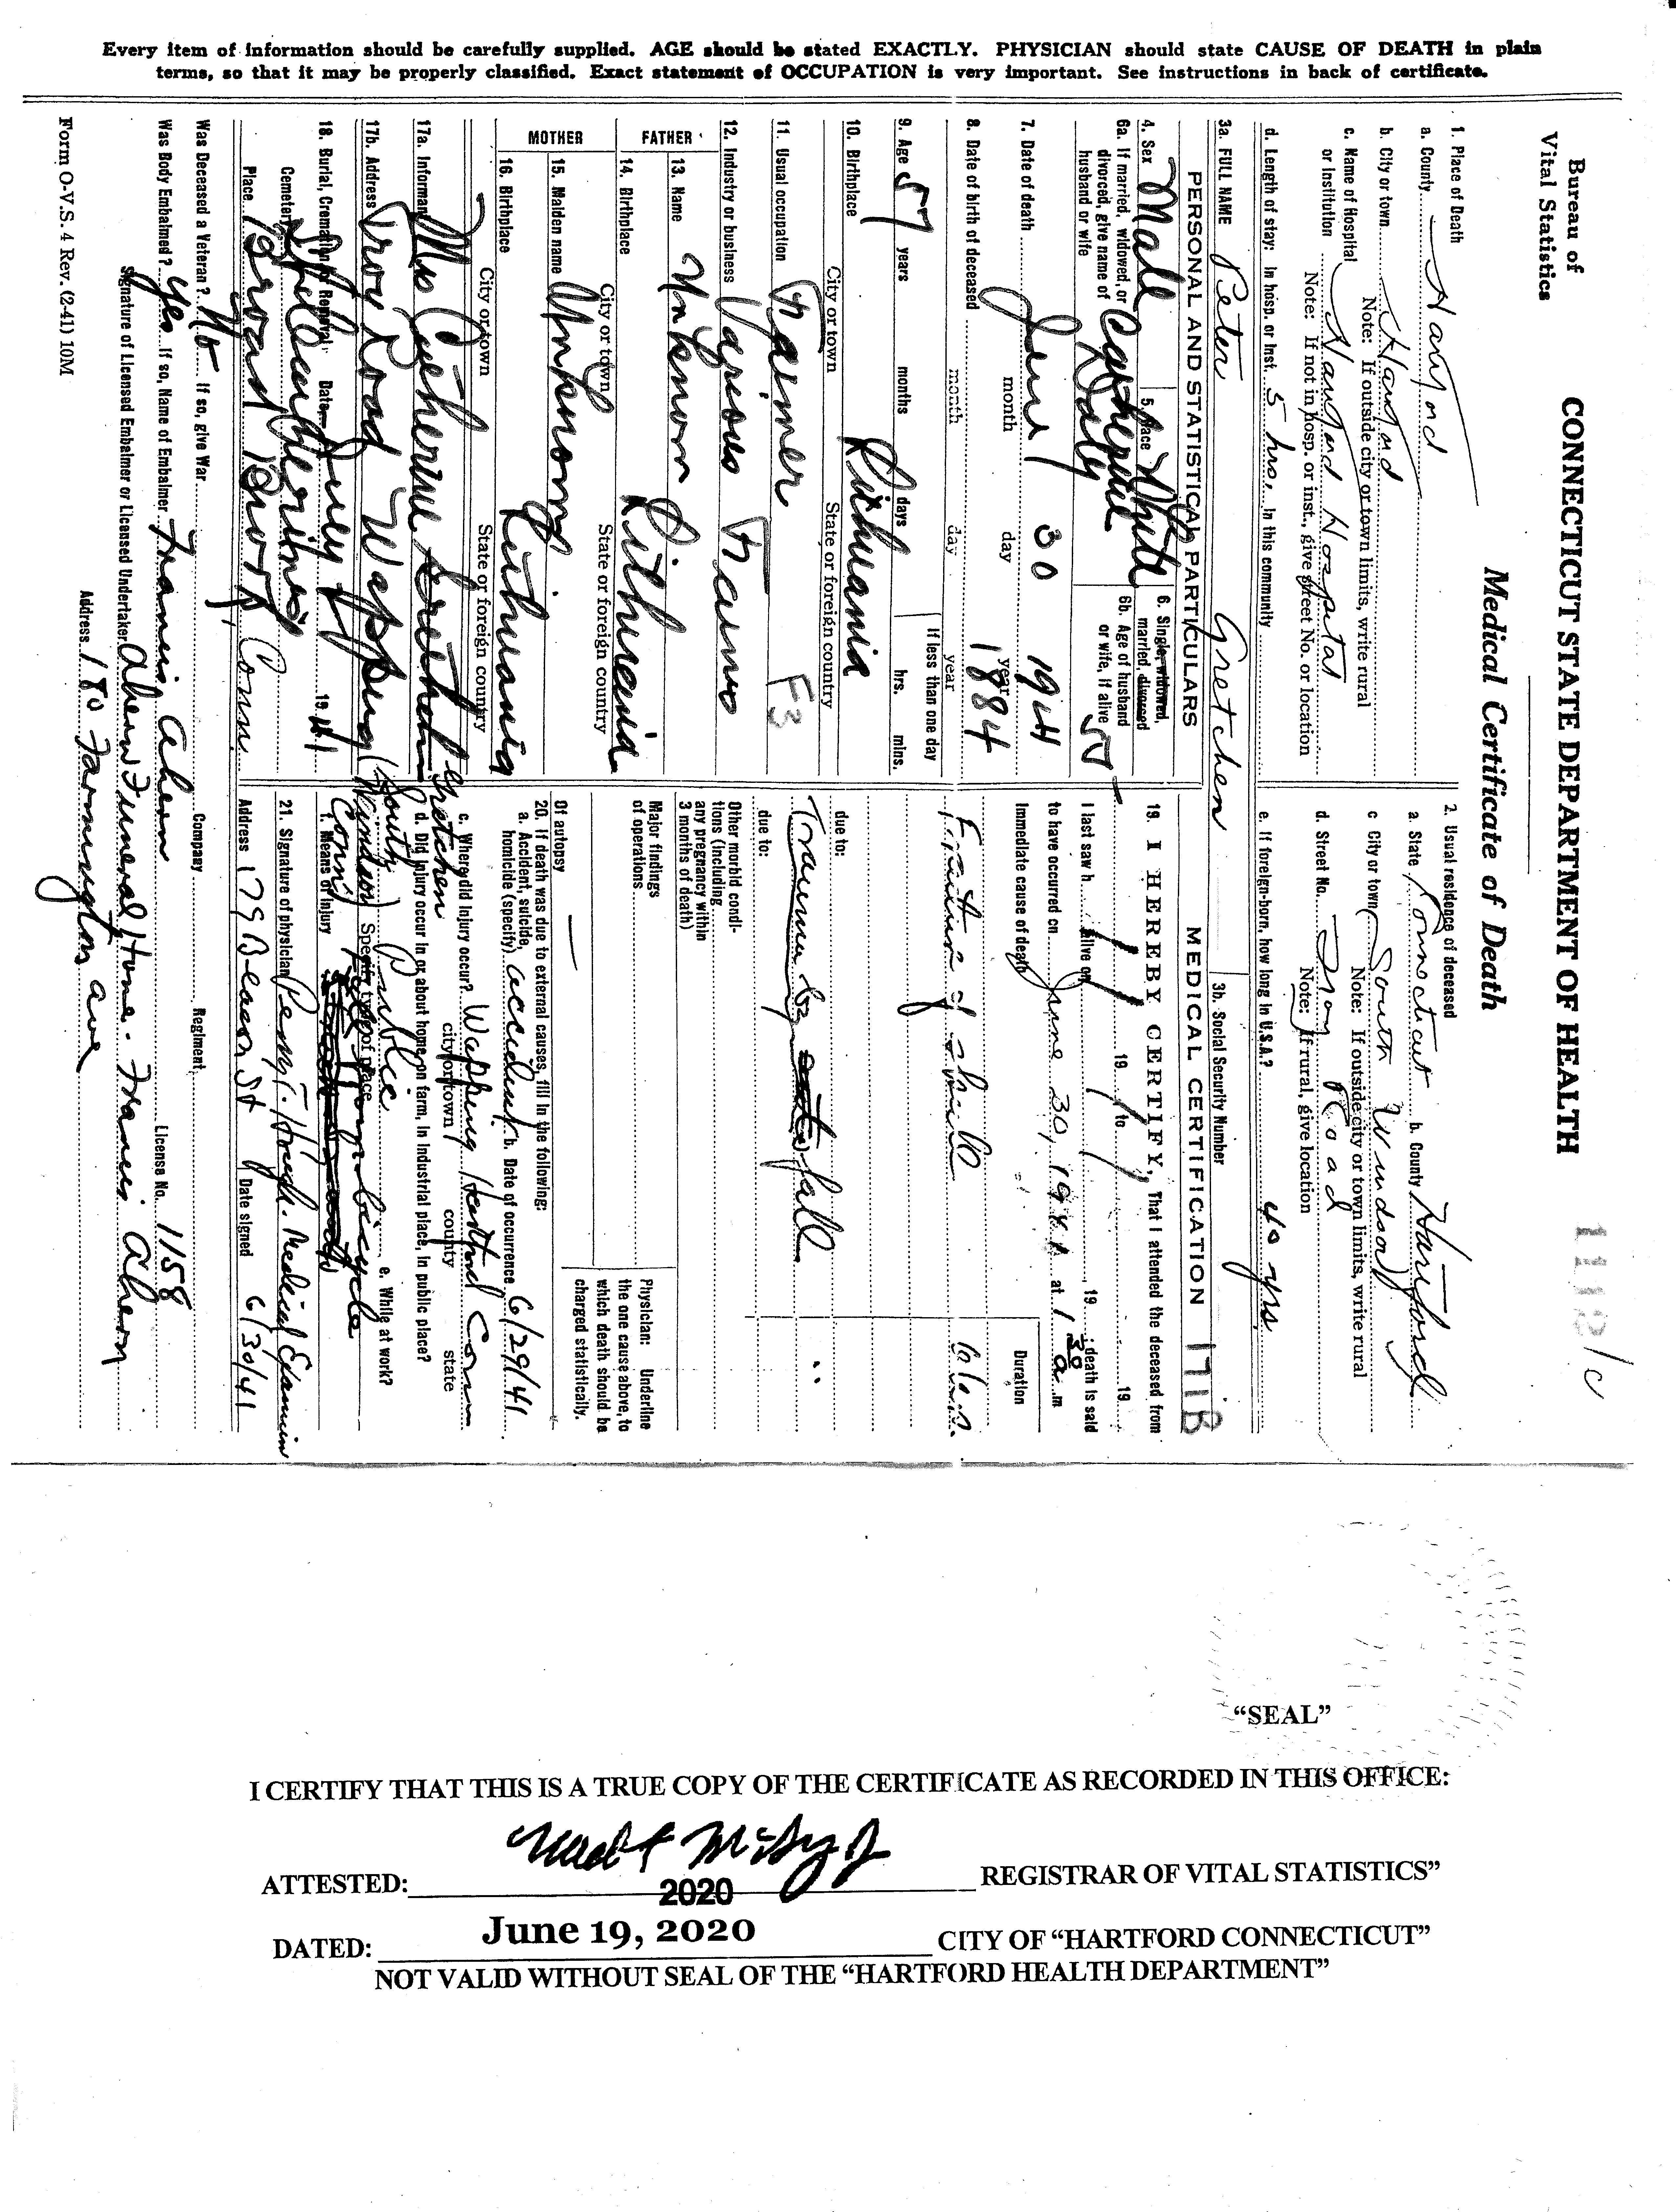 Every item of information should be carefully supplied. AGE should be stated EXACTLY. PHYSICIAN should state CAUSE OF DEATH in plain
terms, so that it may be properly classified. Exact statement of OCCUPATION is very important. See instructions in back of certificate.
Bureau of
Vital Statistics
CONNECTICUT STATE DEPARTMENT OF HEALTH
Medical Certificate of Death
1. Place of Death
a. County Hartford
b. City or town Hartford
Note: If outside city or town limits, write rural
c. Name of Hospital
or Institution Hartford Hospital
Note: If not in hosp. or inst., give street No. or location
d. Length of stay: In hosp. or Inst. 5 hrs. In this community
2. Usual residence of deceased
a. State Connecticut b. County Hartford
c City or town South Windsor
Note: If outside city or town limits, write rural
d. Street No. Troy Road
Note: If rural, give location
e. If foreign-born, how long in U.S.A.? 40 yrs
3a. FULL NAME Peter Gretchen
3b. Social Security Number
PERSONAL AND STATISTICAL PARTICULARS
4. Sex Male 5 Race White 6. Single, widowed,
married, divorced
6a. If married, widowed, or
divorced, give name of
husband or wife Catherine Daly
6b. Age of husband
or wife, if alive 55
7. Date of death June 30 1941
month day year
8. Date of birth of deceased 1884
month day year
9. Age 57 years months days If less than one day
hrs. mins.
10. Birthplace Lithuania
City or town State or foreign country
11. Usual occupation Farmer F3
12. Industry or business Various Farms
FATHER
13. Name Unknown
14. Birthplace Lithuania
City or town State or foreign country
MOTHER
15. Maiden name Unknown
16. Birthplace Lithuania
City or town State or foreign country
17a. Informant Mrs Catherine Gretchen
17b. Address Troy Road Wapping (South Windsor) Conn
18. Burial, Cremation or Removal: Date July 1941
Cemetery
Place Broad Brook, Conn.
Was Deceased a Veteran? No If so, give War Company Regiment
Was Body Embalmed? Yes If so, Name of Embalmer Francis Ahern License No. 1158
Signature of Licensed Embalmer or Licensed Undertaker Ahern Funeral Home. Francis Ahern
Address 180 Farmington ave
Form O-V.S. 4 Rev. (2-41) 10M
MEDICAL CERTIFICATION 171B
19. I HEREBY CERTIFY, That I attended the deceased from
19 to 19
I last saw h alive on 19 ; death is said
to have occurred on June 30, 1941 at 1 30 a m
Immediate cause of death Duration
Fracture of skull
due to:
Trauma by fall
due to:
Other morbid condi-
tions (including
any pregnancy within
3 months of death)
Major findings
of operations
Of autopsy
Physician: Underline
the one cause above, to
which death should be
charged statistically.
20. If death was due to external causes, fill in the following:
a. Accident, suicide,
homicide (specify) accident b. Date of occurrence 6/29/41
c. Where did injury occur? Wapping Hartford Conn
city or town county state
d. Did injury occur in or about home, on farm, in industrial place, in public place?
Public e. While at work?
Specify type of place
f. Means of injury Fell from bicycle
21. Signature of physician Perry T. Hough. Medical Examiner
Address 179 Beacon St Date signed 6/30/41
"SEAL"
I CERTIFY THAT THIS IS A TRUE COPY OF THE CERTIFICATE AS RECORDED IN THIS OFFICE:
ATTESTED: REGISTRAR OF VITAL STATISTICS"
2020
DATED: June 19, 2020 CITY OF "HARTFORD CONNECTICUT"
NOT VALID WITHOUT SEAL OF THE "HARTFORD HEALTH DEPARTMENT"